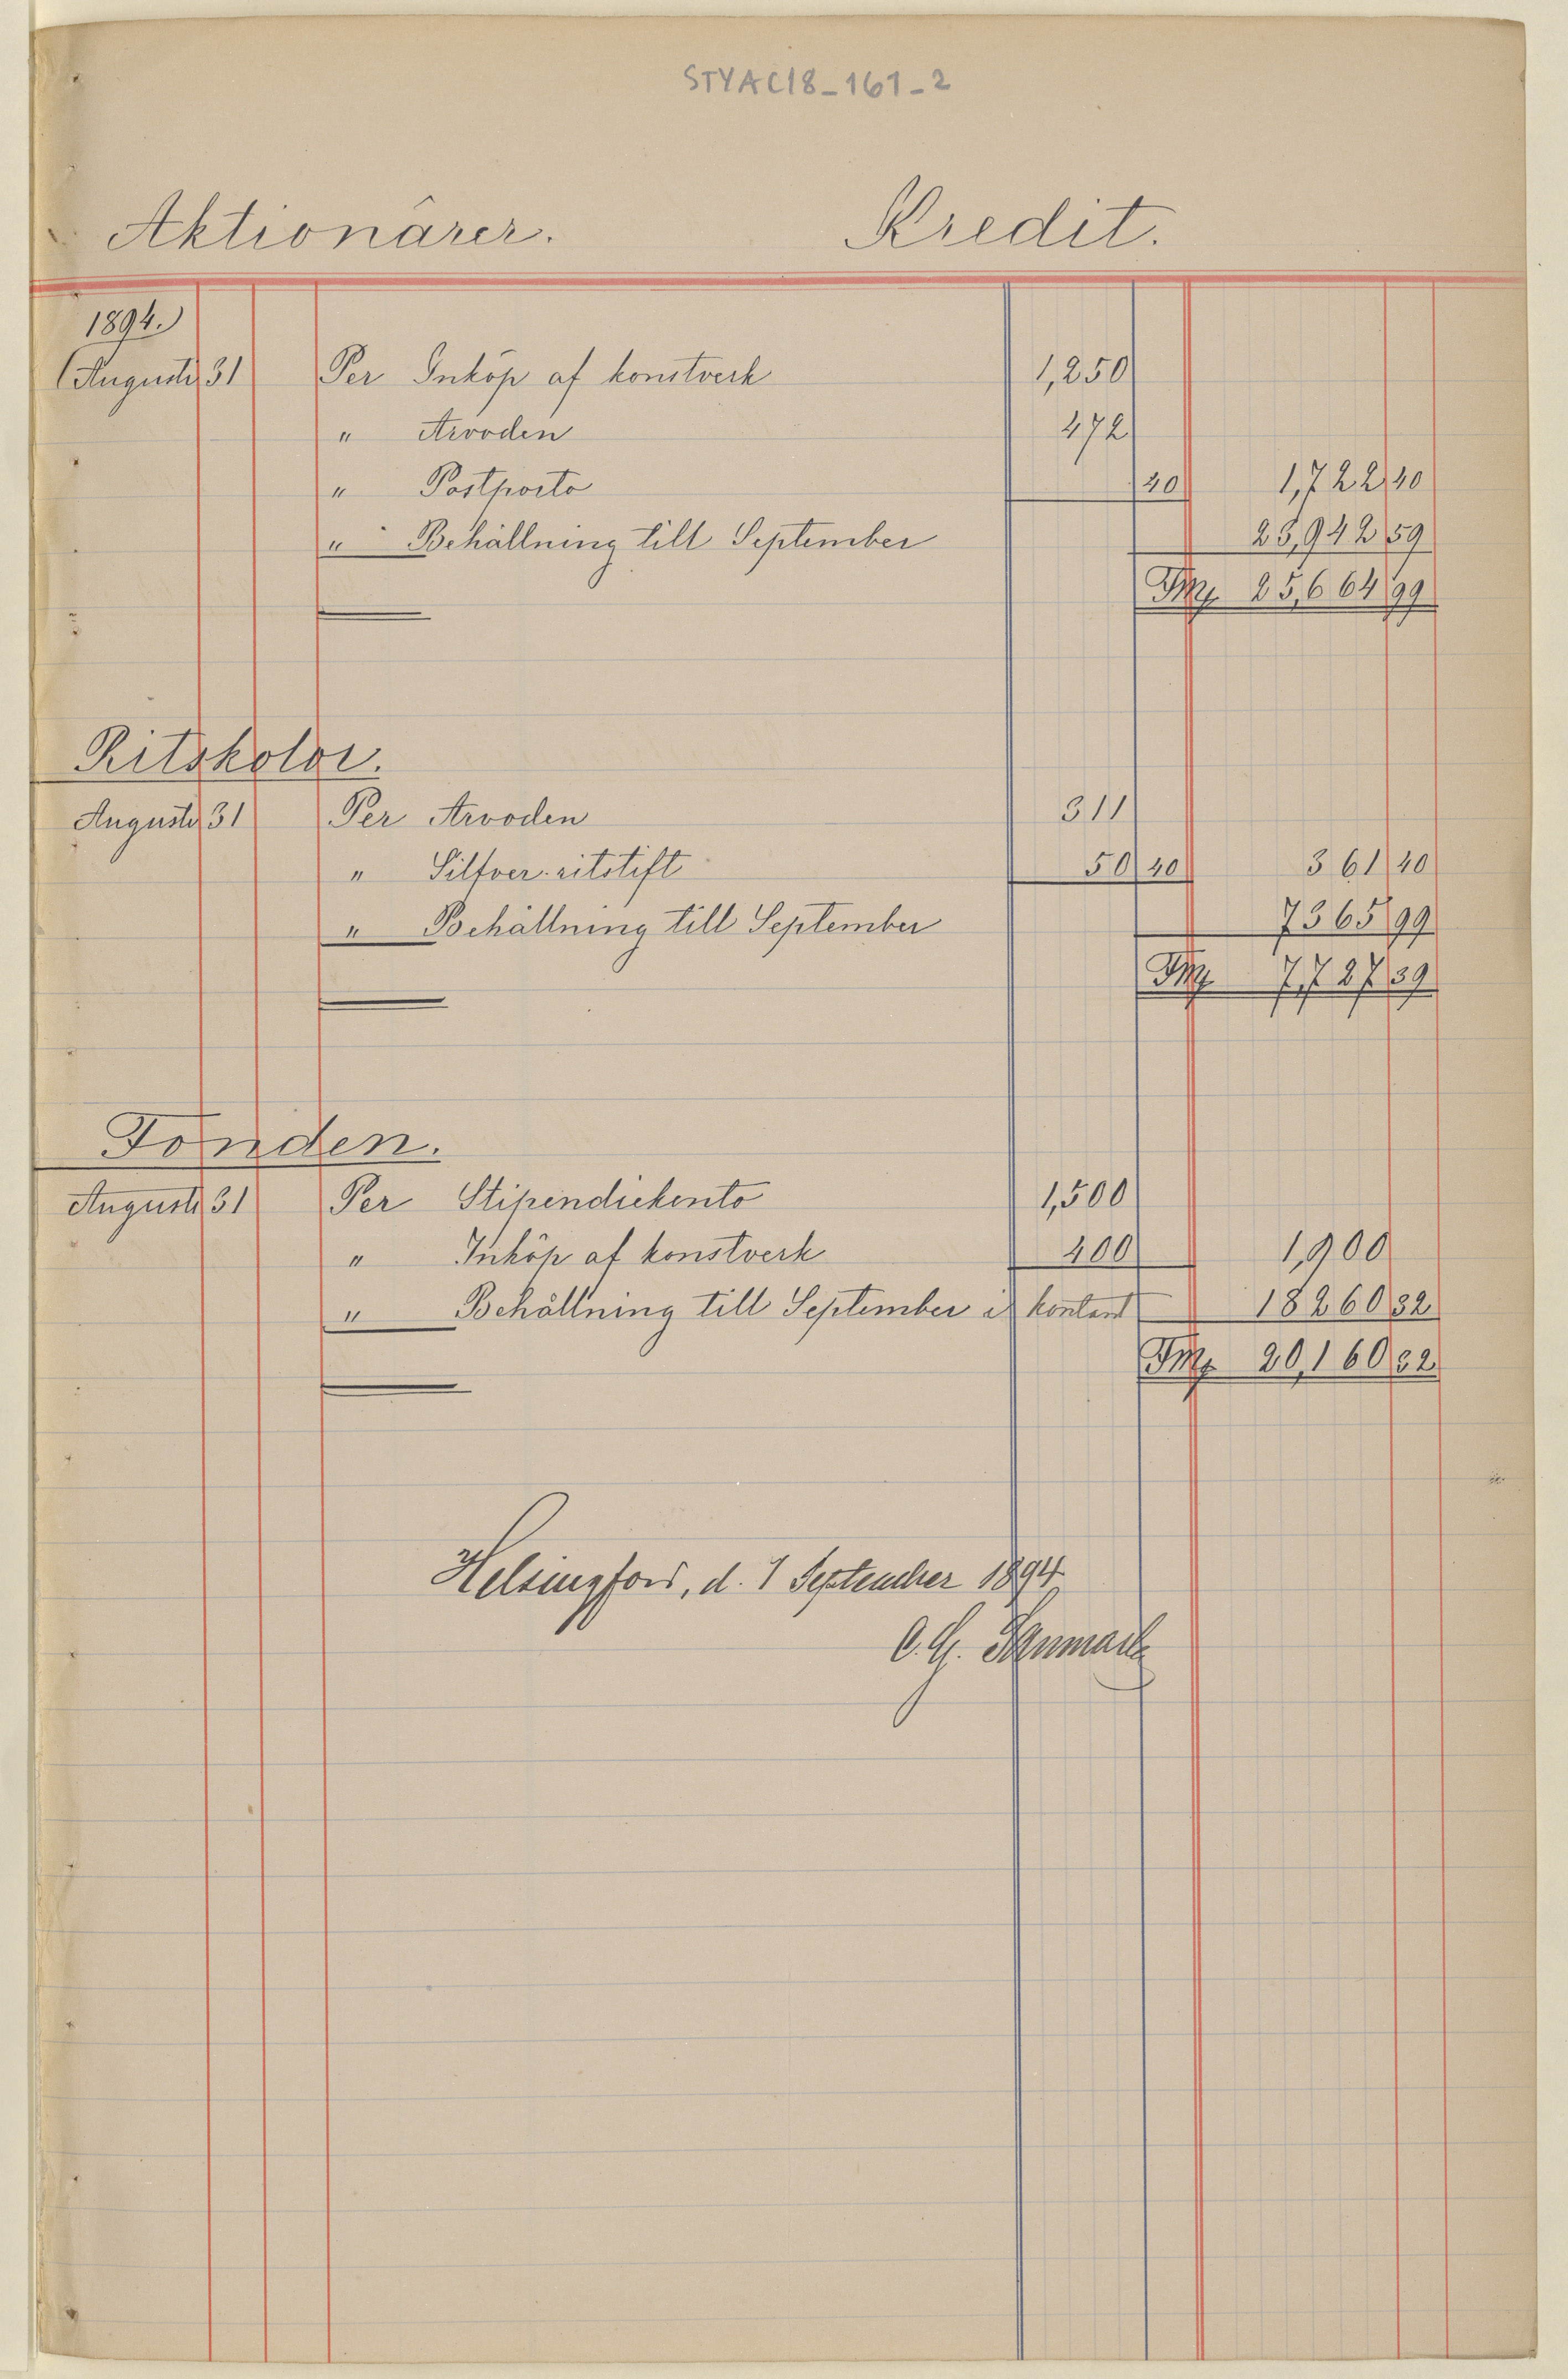 STYAC18-161-2
Aktionärer. Kredit.
1894.
Augusti 31 Per Inköp af konstverk 1,250
" Arvoden 472
" Postporto 40 1,722 40
" Behållning till September 23,942 59
Fmk 25,664 99
Ritskolor.
Augusti 31 Per Arvoden 311
" Silfver-ritstift 50 40 361 40
" Behållning till September 7365 99
Fmk 7,727 39
Fonden.
Augusti 31 Per Stipendiekonto 1,500
" Inköp af konstverk 400 1,900
" Behållning till September i kontant 18260 32
Fmk 20,160 32
Helsingfors, d. 1 September 1894